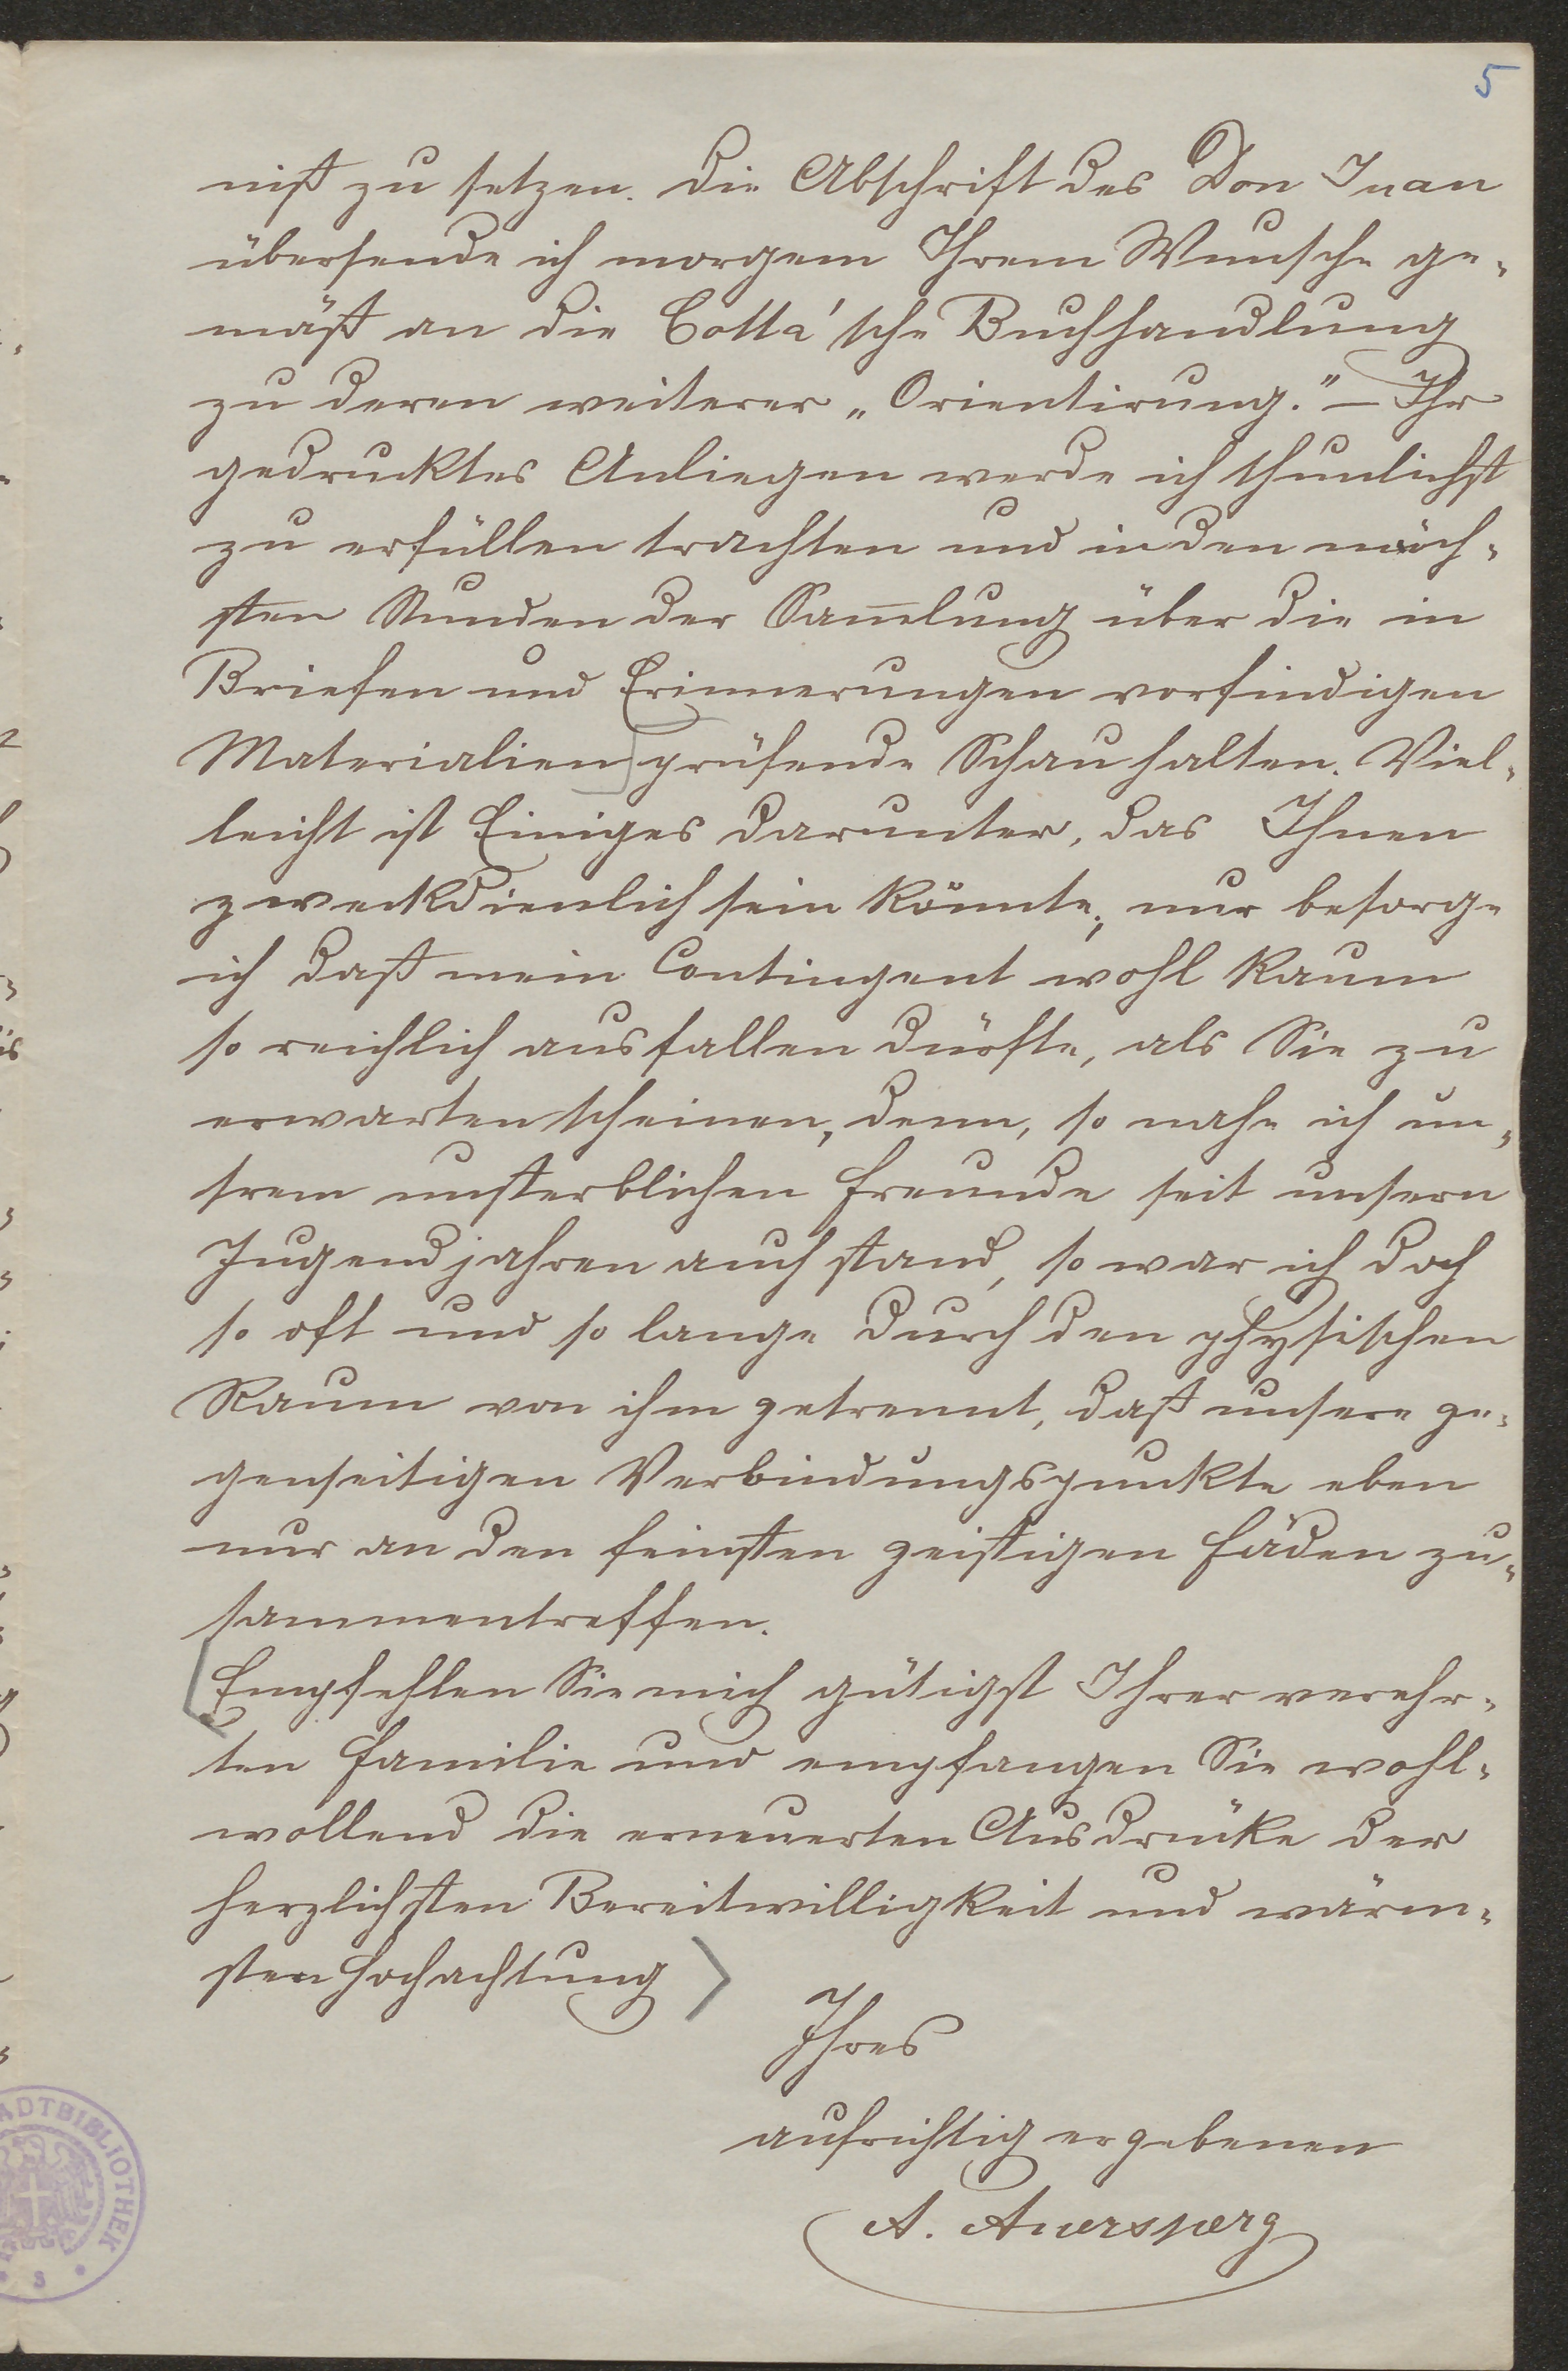 5
niß zu setzen. Die Abschrift des Don Juan
übersende ich morgem Ihrem Wunsche ge-
mäß an die Cotta'sche Buchhandlung
zu deren weiterer „Orientirung." — Ihr
gedrucktes Anliegen werde ich thunlichst
zu erfüllen trachten und in den näch-
sten Stunden der Samlung über die in
Briefen und Erinnerungen vorfindigen
Materialien prüfende Schau halten. Viel-
leicht ist Einiges darunter, das Ihnen
zweckdienlich sein könnte; nur besorge
ich daß mein Contingent wohl kaum
so reichlich ausfallen dürfte, als Sie zu
erwarten scheinen, denn, so nahe ich un-
srem unsterblichen Freunde seit unsern
Jugendjahren auch stand, so war ich doch
so oft und so lange durch den physischen
Raum von ihm getrennt, daß unsere ge-
genseitigen Verbindungspunkte eben
nur an den feinsten geistigen Fäden zu-
sammentreffen.
Empfehlen Sie mich gütigst Ihrer verehr-
ten Familie und empfangen Sie wohl-
wollend die erneuerten Ausdrücke der
herzlichsten Bereitwilligkeit und wärm-
sten Hochachtung
Ihres
aufrichtig ergebenen
A. Auersperg
ADTBIBLIOTHEK